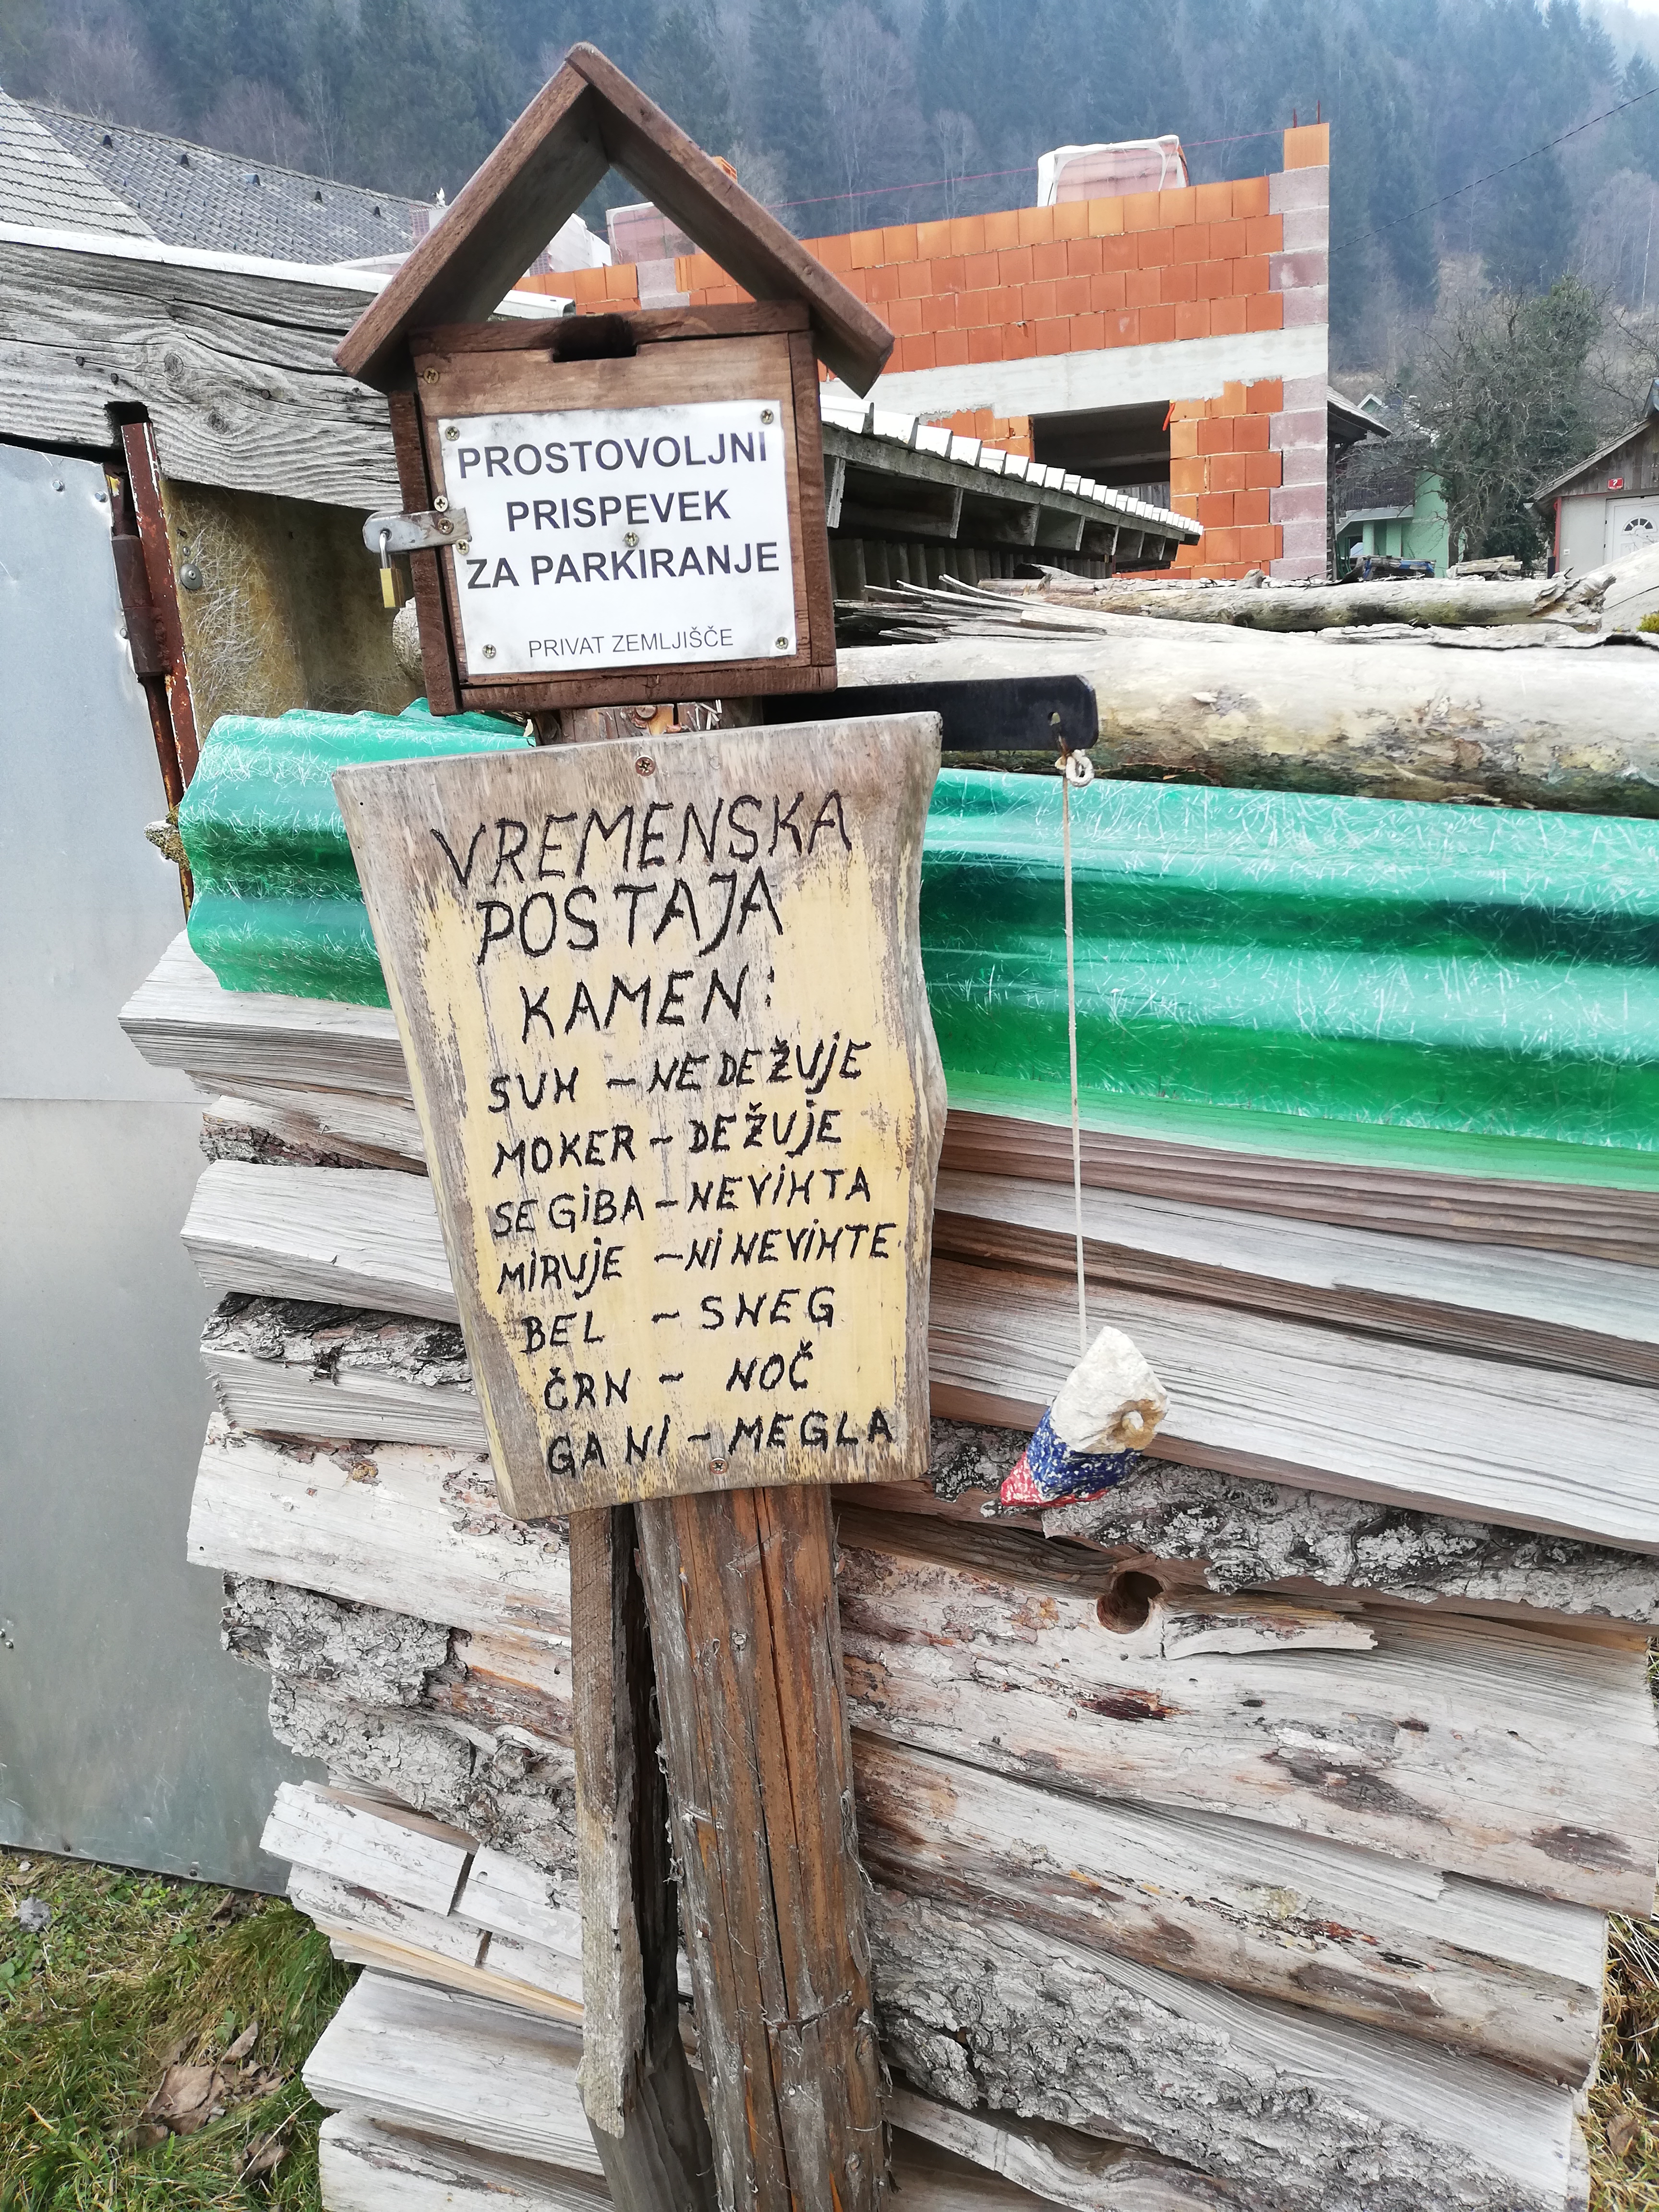 PROSTOVOLJNI
PRISPEVEK
ZA PARKIRANJE
PRIVAT ZEMLJIŠČE
VREMENSKA
POSTAJA
KAMEN:
SUH – NE DEŽUJE
MOKER – DEŽUJE
SE GIBA – NEVIHTA
MIRUJE – NI NEVIHTE
BEL – SNEG
ČRN – NOČ
GA NI – MEGLA
7